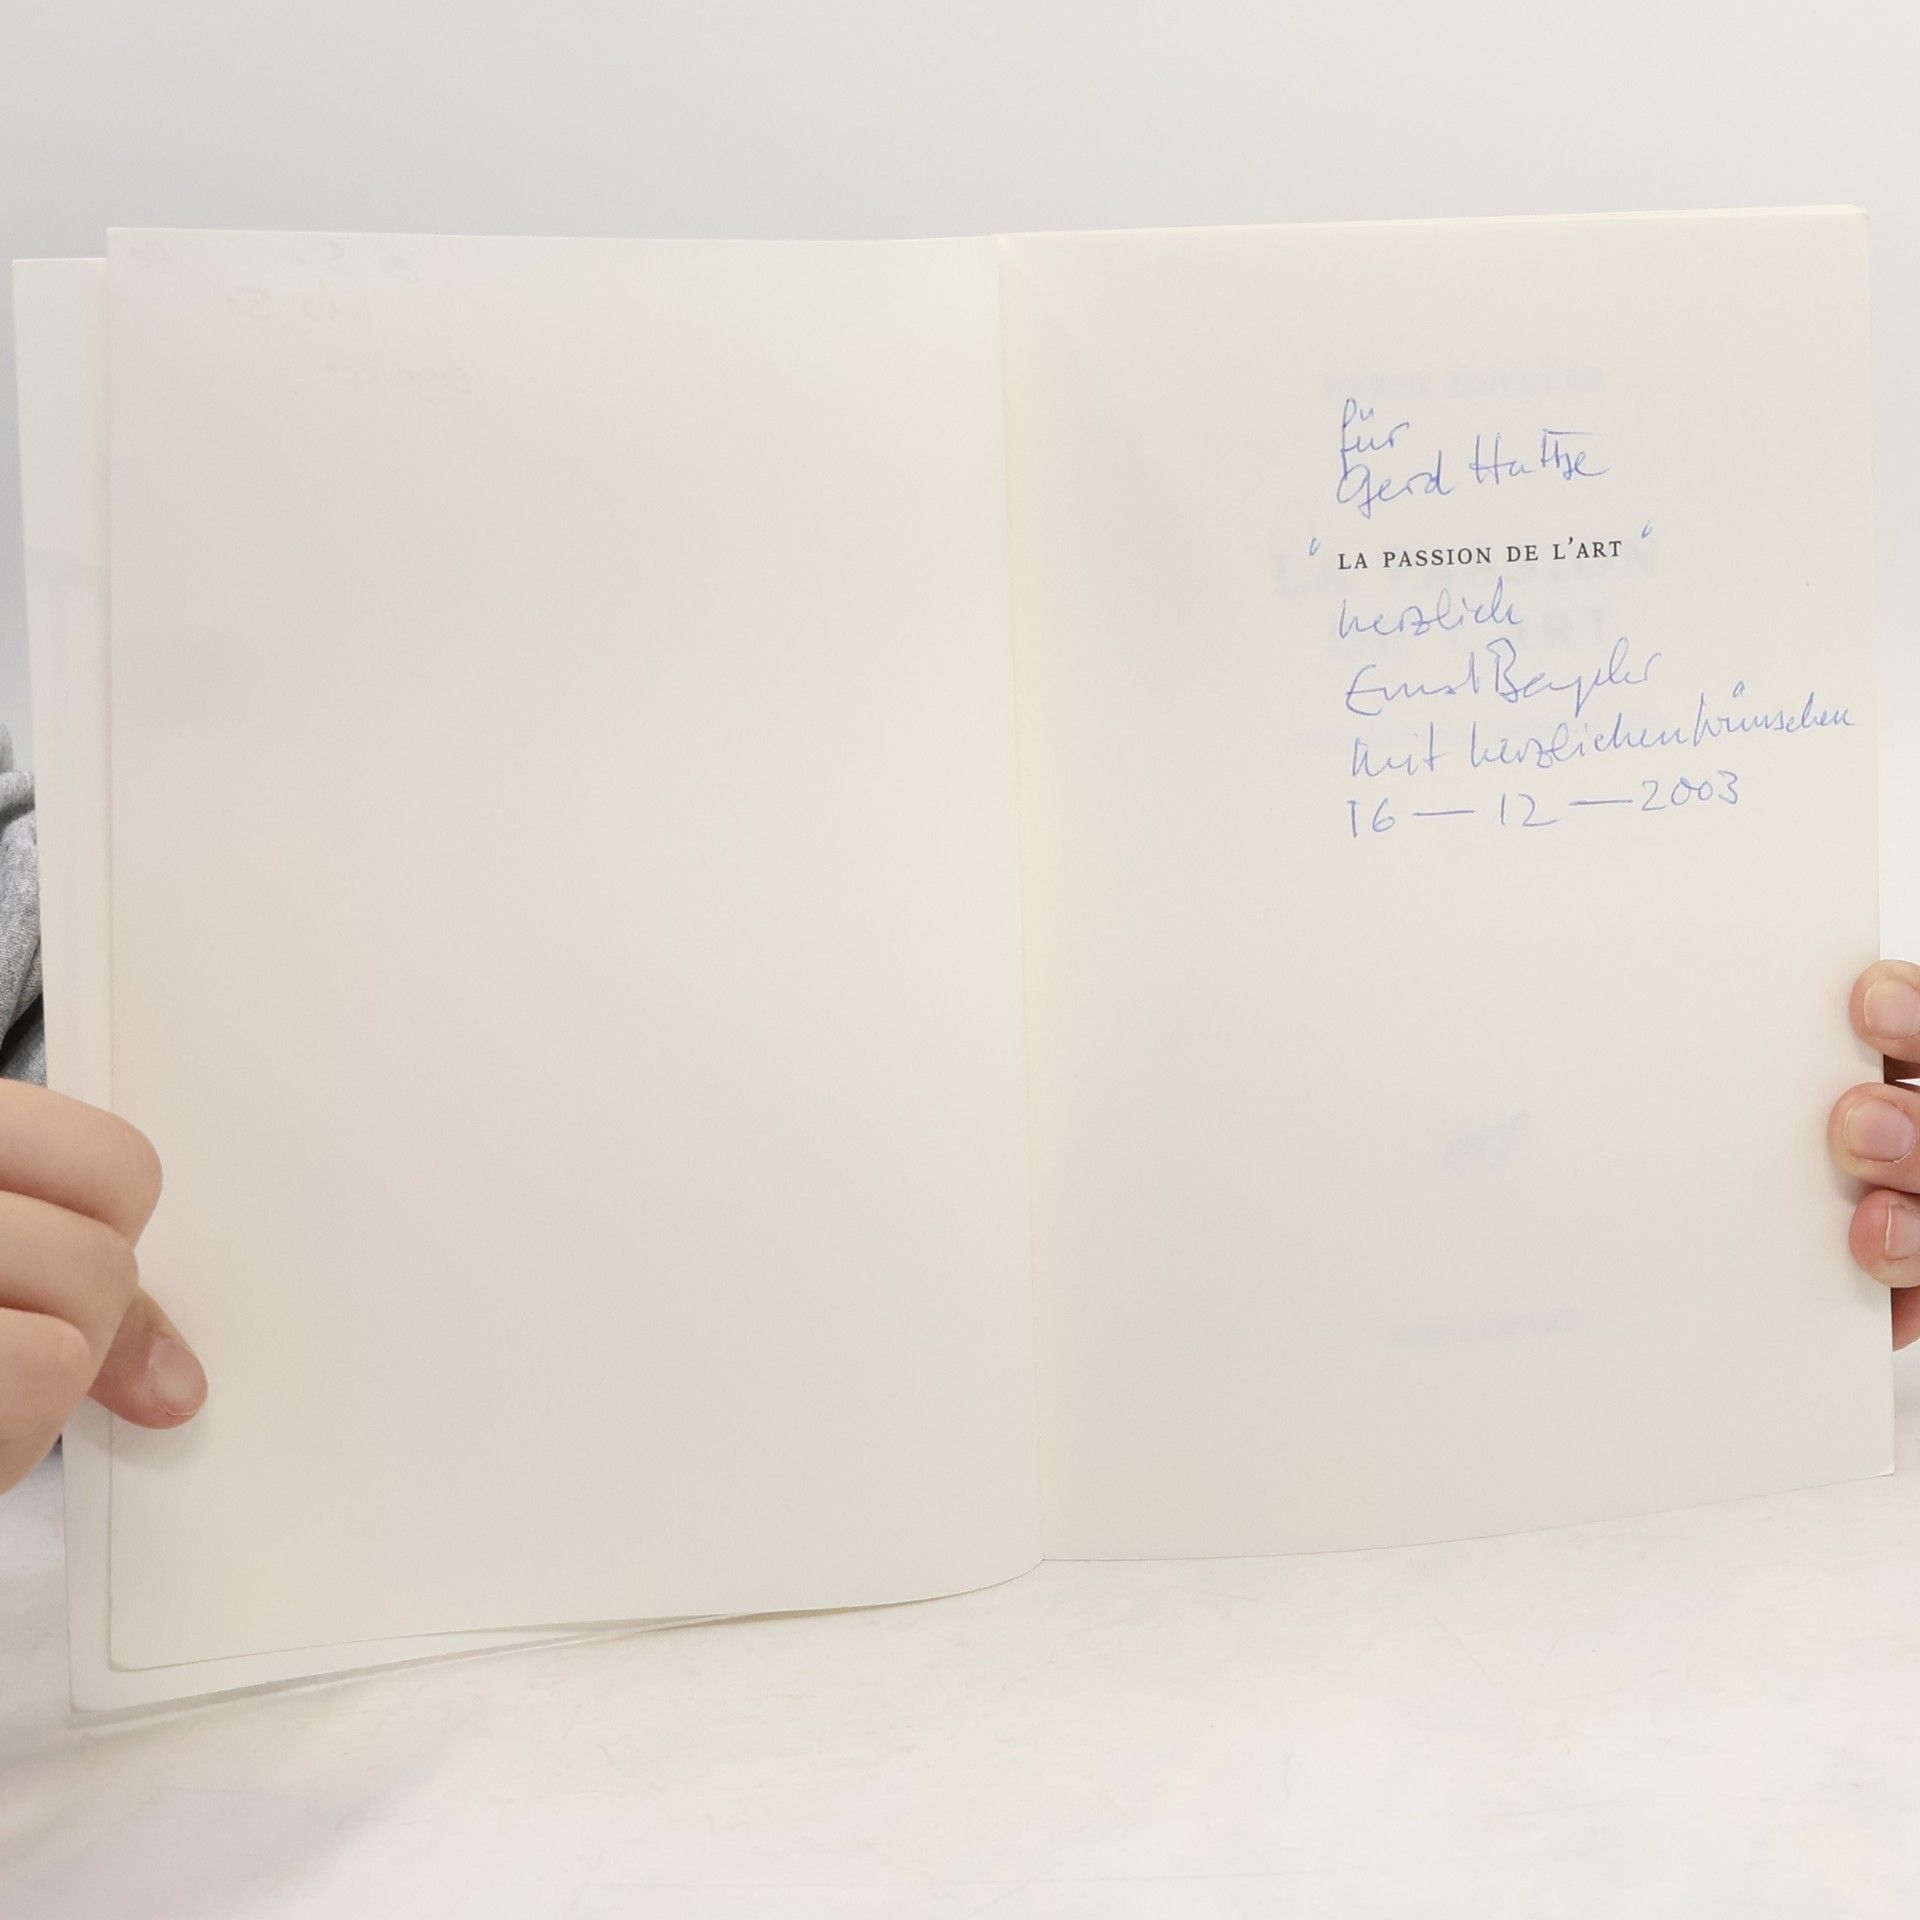 für
Gerd Hatje
" LA PASSION DE L'ART "
herzlich
Ernst Beyeler
mit herzlichen Wünschen
16 — 12 — 2003